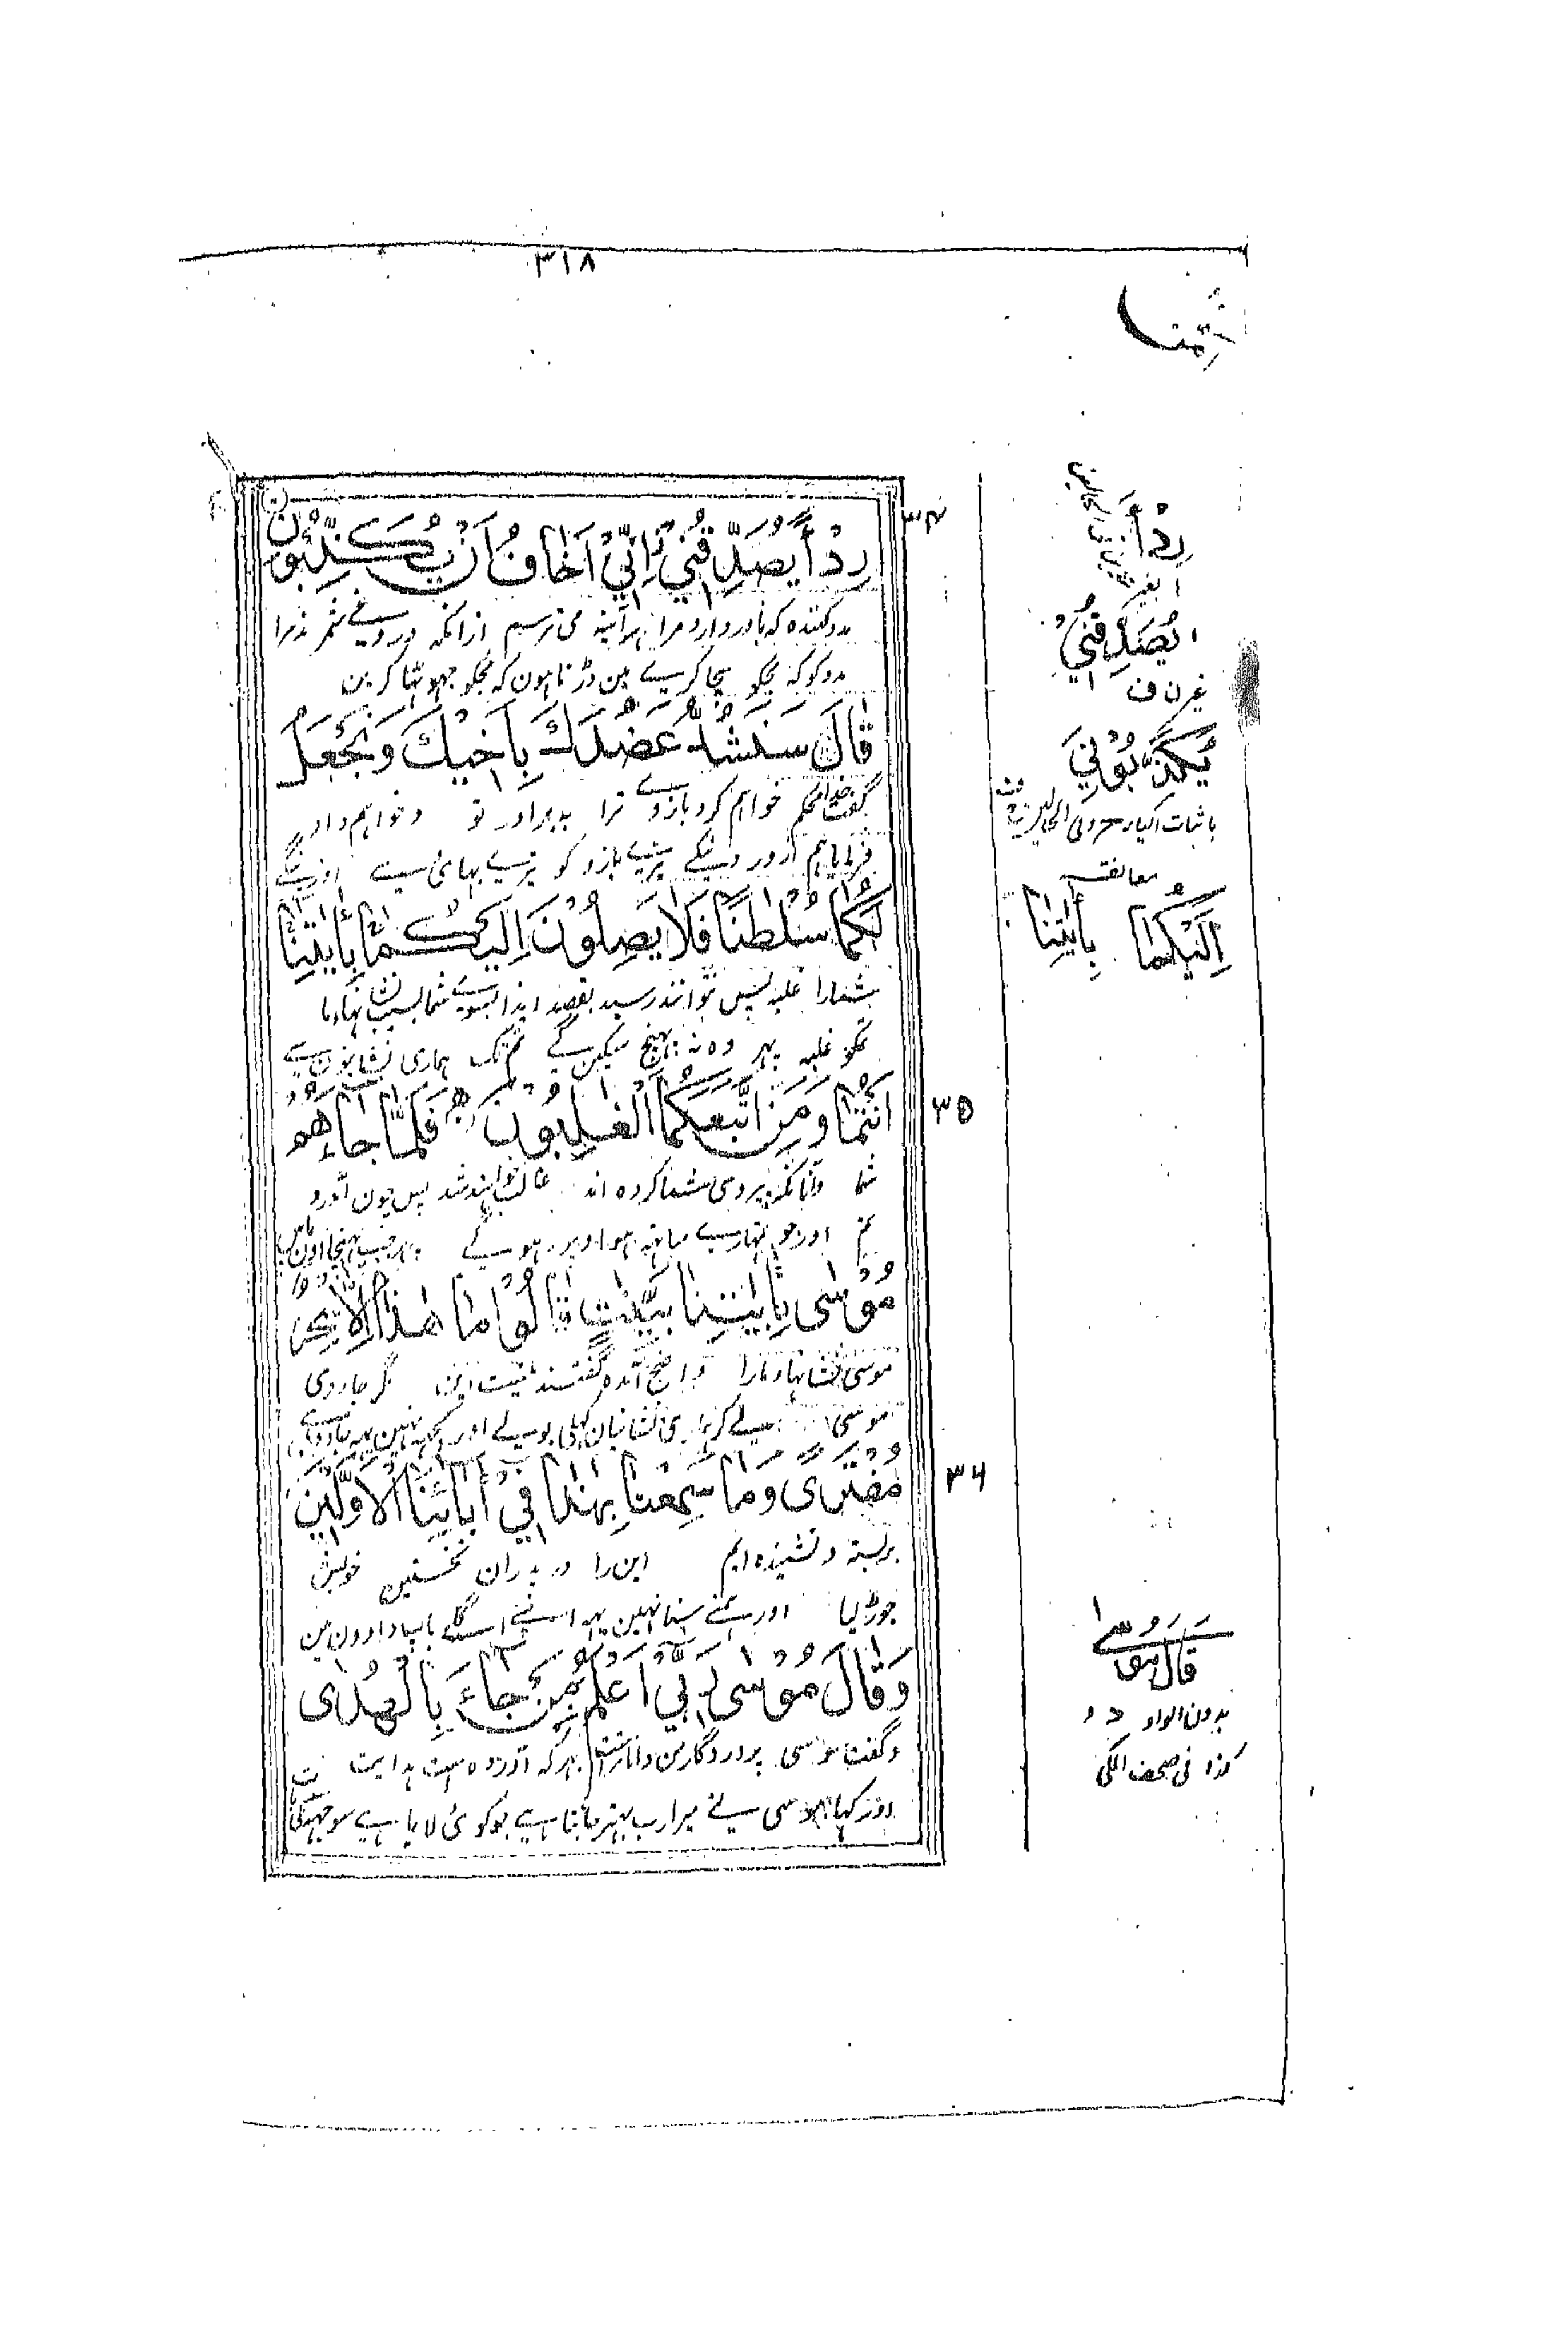 ٣١٨
رِدْأً يُصَدِّقُنِيْ اِنِّيْ اَخَافُ اَنْ يُكَذِّبُوْنِ
٣٤
مدد کننده که باور دارد مرا هر آئینه می ترسم ازانکه دروغی شمرند مرا
مدد کو که مجکو سچا کرے مین ڈرتا ہون که مجکو جہوٹھا کرین
قَالَ سَنَشُدُّ عَضُدَكَ بِاَخِيْكَ وَنَجْعَلُ
گفت خدا محکم خواهم کرد بازوے ترا به برادر تو و خواهم داد
فرمایا ہم زور دینگے تیرے بازو کو تیرے بہائی سے اور دینگے
لَكُمَا سُلْطٰنًا فَلَا يَصِلُوْنَ اِلَيْكُمَا بِاٰيٰتِنَا
شمارا غلبه پس نتوانند رسید بقصد ایذا بسوے شما بسبب نشانهاء ما
تمکو غلبه پهر وہ نه پہنچ سکین گے تم تک ہماری نشانیون سے
اَنْتُمَا وَمَنِ اتَّبَعَكُمَا الْغٰلِبُوْنَ فَلَمَّا جَاءَهُمْ
٣٥
شما و آنانکه پیروی شما کرده اند غالب خواهند شد پس چون آورد
تم اور جو تمہارے ساتهہ ہو اوپر رہو گے پهر جب پہنچا اون پاس
مُوْسٰى بِاٰيٰتِنَا بَيِّنٰتٍ قَالُوْا مَا هٰذَا اِلَّا سِحْرٌ
موسی نشانهاء مارا واضح آمده گفتند نیست این مگر جادوی
موسی لے کر ہماری نشانیان کہلی بولے اور کچهہ نہین یہه جادو ہے
مُفْتَرًى وَمَا سَمِعْنَا بِهٰذَا فِيْ اٰبَائِنَا الْاَوَّلِيْنَ
٣٦
بربسته و نشنیده ایم این را در پدران نخستین خویش
جوڑ لیا اور ہمنے سنا نہین یہه اپنے اگلے باپ دادوون مین
وَقَالَ مُوْسٰى رَبِّيْ اَعْلَمُ بِمَنْ جَاءَ بِالْهُدٰى
و گفت موسی پروردگار من داناتر است بهرکه آورده است هدایت
اور کہا موسی نے میرا رب بہتر جانتا ہے جو کوئی لایا ہے سوجهہ کی
رِدْأً
يُصَدِّقُنِيْ
يُكَذِّبُوْنِيَ
معانقه
اِلَيْكُمَا بِاٰيٰتِنَا
قَالَ مُوْسٰى
بدون الواو
كذا فى مصحف المكى